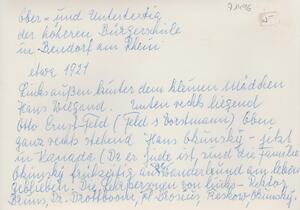 71496
Ober- und Untertertia
der höheren Bürgerschule
in Bendorf am Rhein
etwa 1921
Links außen hinter dem kleinen Mädchen
Hans Wiegand. Unten rechts liegend
Otto Ernst Feld (Feld & Vorstmann) Oben
ganz rechts stehend Hans Okunsky - jetzt
in Kanada (Da er Jude ist, sind die Familie
Okunsky frühzeitig auswanderte und am Leben
geblieben. Die Lehrpersonen von links: Rektor
Bruns, Dr. Trottboom,